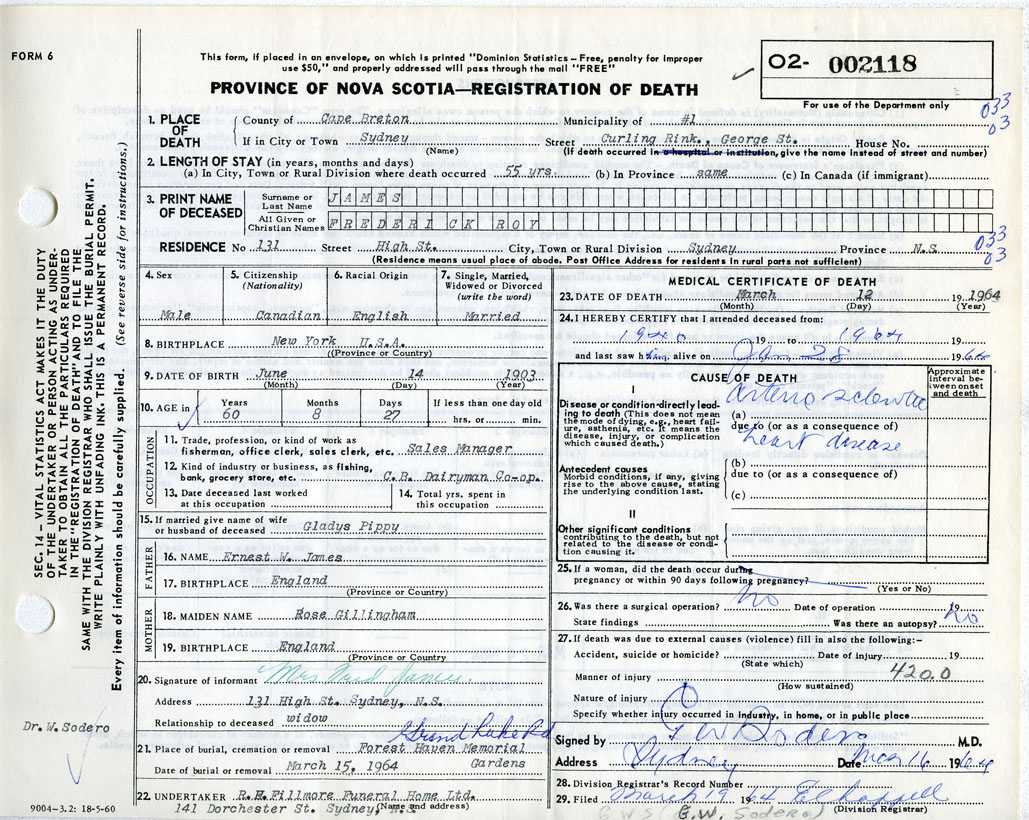 FORM 6
This form, if placed in an envelope, on which is printed "Dominion Statistics – Free, penalty for improper
use $50," and properly addressed will pass through the mail "FREE"
PROVINCE OF NOVA SCOTIA—REGISTRATION OF DEATH
O2- 002118
For use of the Department only
033
03
1. PLACE OF DEATH
County of Cape Breton Municipality of #1
If in City or Town Sydney Street Curling Rink., George St. House No.
(Name) (If death occurred in a hospital or institution, give the name instead of street and number)
2. LENGTH OF STAY (in years, months and days)
(a) In City, Town or Rural Division where death occurred 55 yrs. (b) In Province same (c) In Canada (if immigrant)
3. PRINT NAME OF DECEASED
Surname or Last Name JAMES
All Given or Christian Names FREDERICK ROY
RESIDENCE No 131 Street High St. City, Town or Rural Division Sydney Province N.S.
033
03
(Residence means usual place of abode. Post Office Address for residents in rural parts not sufficient)
4. Sex
Male
5. Citizenship
(Nationality)
Canadian
6. Racial Origin
English
7. Single, Married,
Widowed or Divorced
(write the word)
Married
8. BIRTHPLACE New York U.S.A.
(Province or Country)
9. DATE OF BIRTH June 14 1903
(Month) (Day) (Year)
10. AGE in
Years Months Days If less than one day old
60 8 27 hrs. or min.
OCCUPATION
11. Trade, profession, or kind of work as
fisherman, office clerk, sales clerk, etc. Sales Manager
12. Kind of industry or business, as fishing,
bank, grocery store, etc. C.B. Dairyman Co-op.
13. Date deceased last worked
at this occupation
14. Total yrs. spent in
this occupation
15. If married give name of wife
or husband of deceased Gladys Pippy
FATHER
16. NAME Ernest W. James
17. BIRTHPLACE England
(Province or Country)
MOTHER
18. MAIDEN NAME Rose Gillingham
19. BIRTHPLACE England
(Province or Country)
20. Signature of informant Mrs James
Address 131 High St. Sydney, N.S.
Relationship to deceased widow
Grand Lake Rd
21. Place of burial, cremation or removal Forest Haven Memorial
Gardens
Date of burial or removal March 15, 1964
22. UNDERTAKER R.H. Fillmore Funeral Home Ltd.
141 Dorchester St. Sydney, (Name and address)
MEDICAL CERTIFICATE OF DEATH
23. DATE OF DEATH March 12 1964
(Month) (Day) (Year)
24. I HEREBY CERTIFY that I attended deceased from:
1940 19 to 1964 19
and last saw him alive on Jan 28 1964
CAUSE OF DEATH
Approximate
interval be-
tween onset
and death
I
Disease or condition directly lead-
ing to death (This does not mean
the mode of dying, e.g., heart fail-
ure, asthenia, etc. It means the
disease, injury, or complication
which caused death.)
(a) Arterio sclerotic
due to (or as a consequence of)
heart disease
Antecedent causes
Morbid conditions, if any, giving
rise to the above cause, stating
the underlying condition last.
(b)
due to (or as a consequence of)
(c)
II
Other significant conditions
contributing to the death, but not
related to the disease or condi-
tion causing it.
25. If a woman, did the death occur during
pregnancy or within 90 days following pregnancy?
(Yes or No)
26. Was there a surgical operation? No Date of operation 19
State findings Was there an autopsy? No
27. If death was due to external causes (violence) fill in also the following:–
Accident, suicide or homicide? Date of Injury 19
(State which)
Manner of injury 420.0
(How sustained)
Nature of injury
Specify whether injury occurred in industry, in home, or in public place
Signed by G W Sodero M.D.
Address Sydney Date Mar 16 1964
28. Division Registrar's Record Number
29. Filed March 19 1964
(Division Registrar)
GWS (G.W. Sodero)
SEC. 14 – VITAL STATISTICS ACT MAKES IT THE DUTY
OF THE UNDERTAKER OR PERSON ACTING AS UNDER-
TAKER TO OBTAIN ALL THE PARTICULARS REQUIRED
IN THE "REGISTRATION OF DEATH" AND TO FILE THE
SAME WITH THE DIVISION REGISTRAR WHO SHALL ISSUE THE BURIAL PERMIT.
WRITE PLAINLY WITH UNFADING INK. THIS IS A PERMANENT RECORD.
Every item of information should be carefully supplied. (See reverse side for instructions.)
Dr. W. Sodero
9004–3.2: 18-5-60